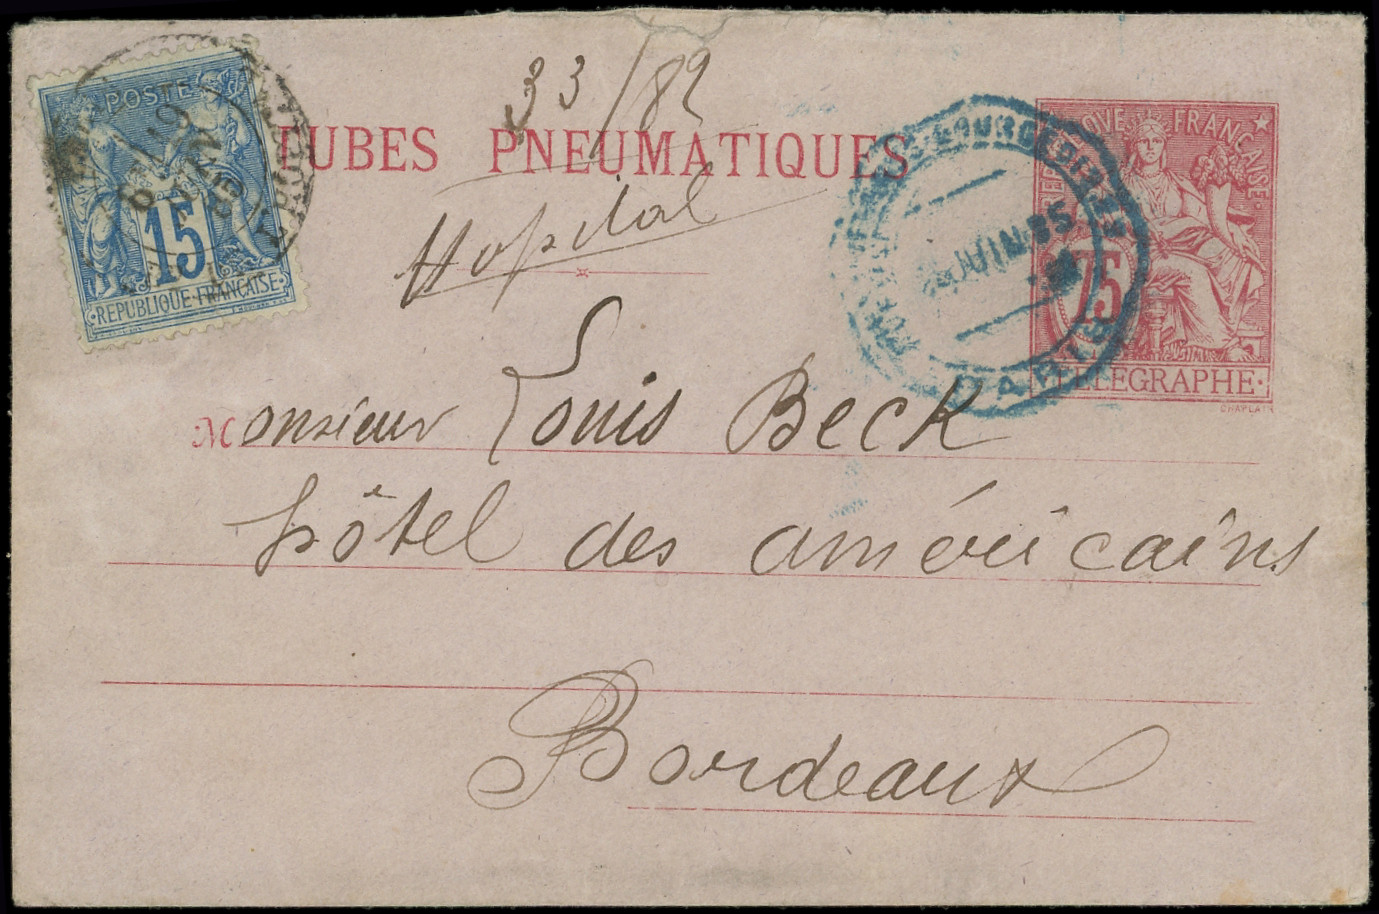 POSTE
15
REPUBLIQUE FRANÇAISE
33/82
TUBES PNEUMATIQUES
Hopital
JUIN 85
PARIS
FRANÇAISE
75
TELEGRAPHE
CHAPLAIN
Monsieur Louis Beck
hôtel des américains
Bordeaux